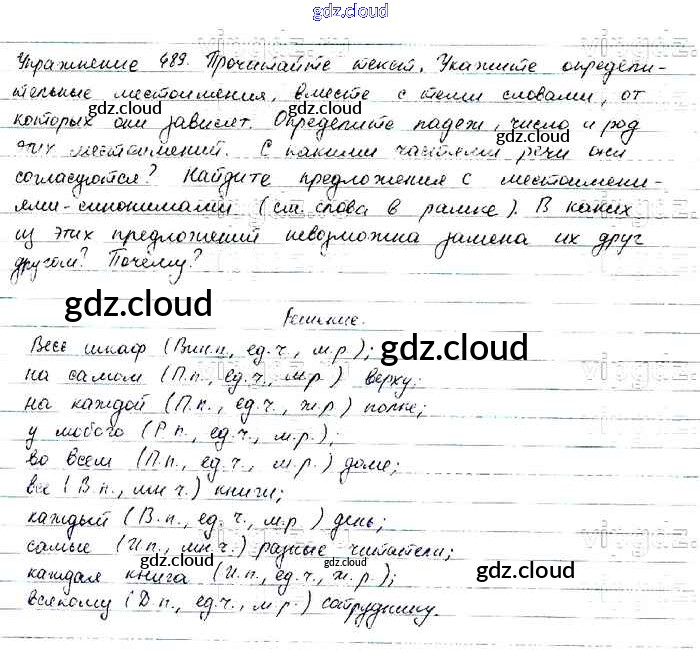 gdz.cloud
Упражнение 489. Прочитайте текст. Укажите определи-
тельные местоимения, вместе с теми словами, от
которых они зависят. Определите падеж, число и род
этих местоимений. С какими частями речи они
согласуются? Найдите предложения с местоимени-
ями-синонимами (см. слова в рамке). В каких
из этих предложений невозможна замена их друг
другом? Почему?
Решение.
Весь шкаф (Вин.п., ед.ч., м.р.);
на самом (П.п., ед.ч., м.р.) верху;
на каждой (П.п., ед.ч., ж.р) полке;
у любого (Р.п., ед.ч., м.р.);
во всем (П.п., ед.ч., м.р.) доме;
все (В.п., мн.ч.) книги;
каждый (В.п., ед.ч., м.р.) день;
самые (И.п., мн.ч.) разные читатели;
каждая книга (И.п., ед.ч., ж.р.);
всякому (Д.п., ед.ч., м.р.) сотруднику.
gdz.cloud
gdz.cloud
gdz.cloud
gdz.cloud
gdz.cloud
gdz.cloud
gdz.cloud
gdz.cloud
gdz.cloud